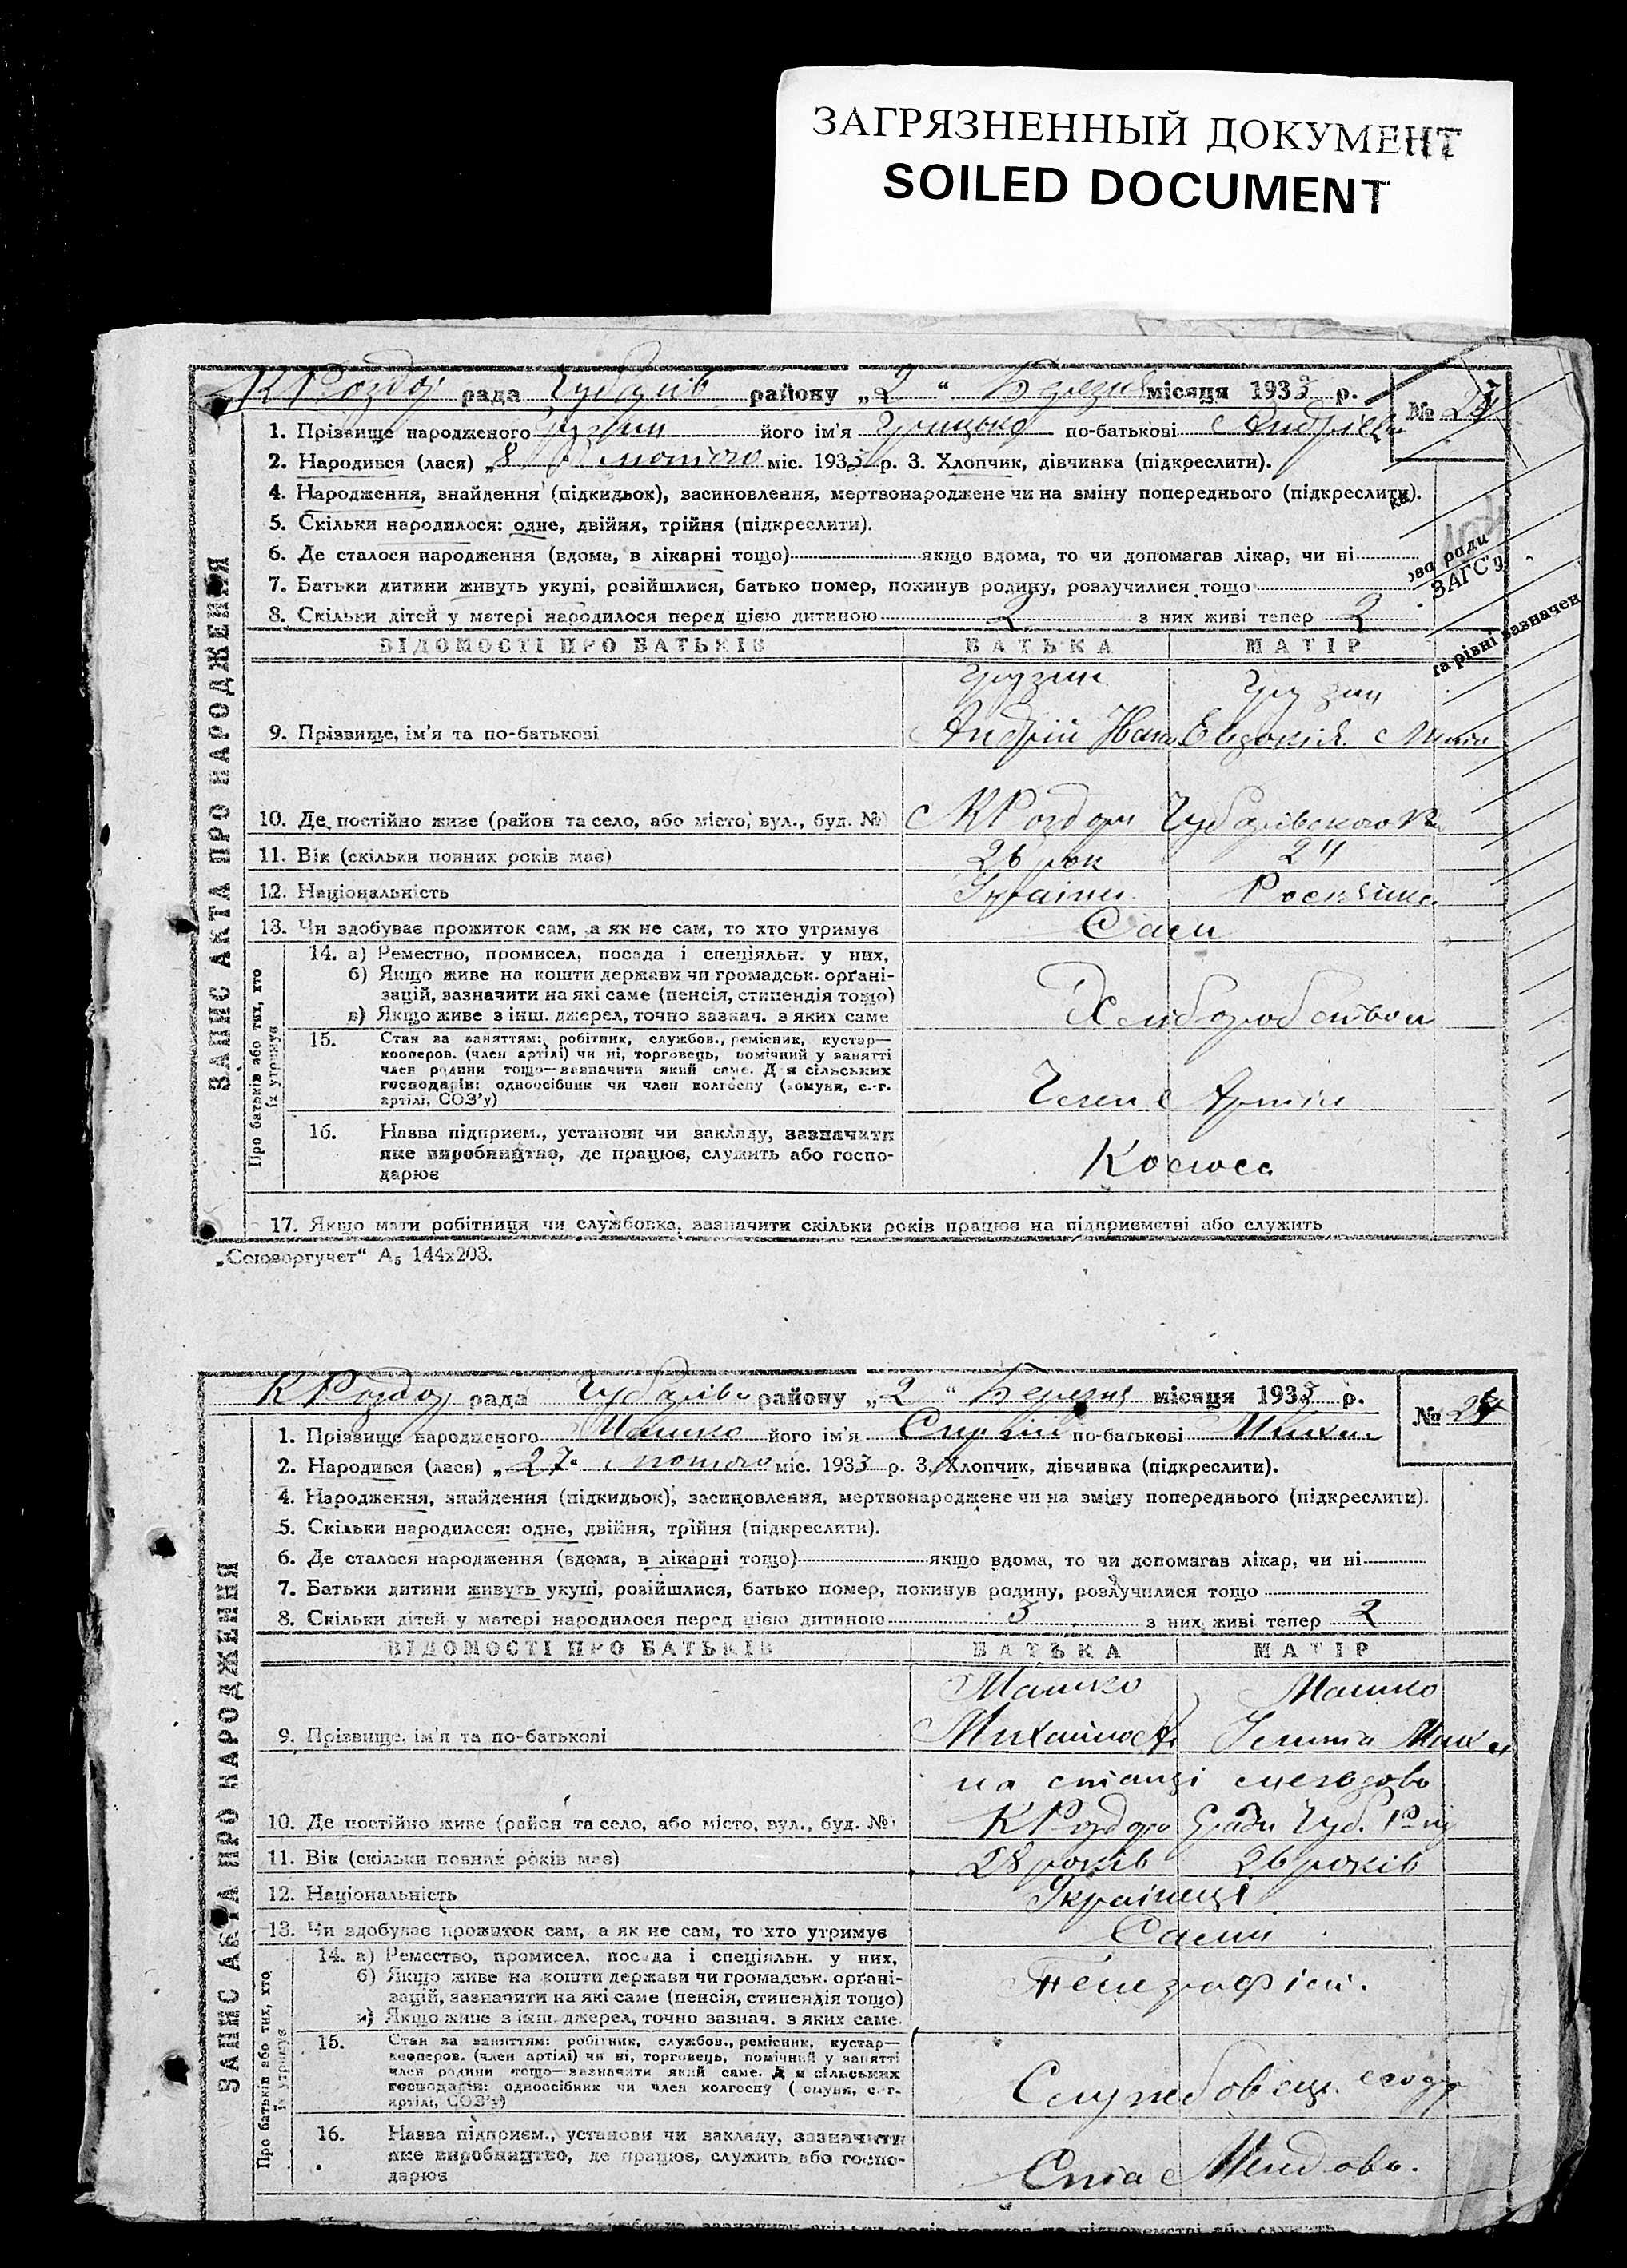 ЗАГРЯЗНЕННЫЙ ДОКУМЕНТ
SOILED DOCUMENT
К Роздор рада Чубарів району „2“ Березня місяця 1933 р.
№
1. Прізвище народженого Грузин його ім'я Грицько по-батькові Андрієв
2. Народився (лася) „8 лютого міс. 1933 р. 3. Хлопчик, дівчинка (підкреслити).
4. Народження, знайдення (підкидьок), засиновлення, мертвонароджене чи на зміну попереднього (підкреслити).
5. Скільки народилося: одне, двійня, трійня (підкреслити).
6. Де сталося народження (вдома, в лікарні тощо) якщо вдома, то чи допомагав лікар, чи ні
7. Батьки дитини живуть укупі, розійшлися, батько помер, покинув родину, розлучилися тощо
8. Скільки дітей у матері народилося перед цією дитиною 2 з них живі тепер 2
ова ради
ЗАГС'у
та рівні зазначен
ЗАПИС АКТА ПРО НАРОДЖЕННЯ
ВІДОМОСТІ ПРО БАТЬКІВ БАТЬКА МАТІР
Грузин Грузин
9. Прізвище, ім'я та по-батькові Андрій Іван Евдокія
10. Де постійно живе (район та село, або місто, вул., буд. №) К Роздори Чубарівського
11. Вік (скільки повних років має) 26 рок 24
12. Національність Україн
13. Чи здобуває прожиток сам, а як не сам, то хто утримує Сами
Про батьків або тих, хто їх утримує
14. а) Ремество, промисел, посада і спеціяльн. у них,
б) Якщо живе на кошти держави чи громадськ. орґані-
зацій, зазначити на які саме (пенсія, стипендія тощо)
в) Якщо живе з інш. джерел, точно зазнач. з яких саме
Хліборобством
15. Стан за заняттям: робітник, службов., ремісник, кустар—
кооперов. (член артілі) чи ні, торговець, помічний у занятті
член родини тощо—зазначити який саме. Для сільських
господарів: одноосібник чи член колгоспу (комуни, с.-г.
артілі, СОЗ'у)
Член Артіли
16. Назва підприєм., установи чи закладу, зазначити
яке виробництво, де працює, служить або госпо-
дарює
17. Якщо мати робітниця чи службовка, зазначити скільки років працює на підприємстві або служить
„Союзоргучет“ А₅ 144х203.
К Роздор рада Чубарівс району „2“ Березня місяця 1933 р.
№
1. Прізвище народженого Машко його ім'я Сергій по-батькові Михай
2. Народився (лася) „27“ лютого міс. 1933 р. 3. Хлопчик, дівчинка (підкреслити).
4. Народження, знайдення (підкидьок), засиновлення, мертвонароджене чи на зміну попереднього (підкреслити).
5. Скільки народилося: одне, двійня, трійня (підкреслити).
6. Де сталося народження (вдома, в лікарні тощо) якщо вдома, то чи допомагав лікар, чи ні
7. Батьки дитини живуть укупі, розійшлися, батько помер, покинув родину, розлучилися тощо
8. Скільки дітей у матері народилося перед цією дитиною 3 з них живі тепер 2
ЗАПИС АКТА ПРО НАРОДЖЕННЯ
ВІДОМОСТІ ПРО БАТЬКІВ БАТЬКА МАТІР
Машко Машко
9. Прізвище, ім'я та по-батькові
на станці
10. Де постійно живе (район та село, або місто, вул., буд. №) К Роздори Сради Чуб. Р-ну
11. Вік (скільки повних років має) 28 років 26 років
12. Національність Українці
13. Чи здобуває прожиток сам, а як не сам, то хто утримує Сами
Про батьків або тих, хто їх утримує
14. а) Ремество, промисел, посада і спеціяльн. у них,
б) Якщо живе на кошти держави чи громадськ. орґані-
зацій, зазначити на які саме (пенсія, стипендія тощо)
в) Якщо живе з інш. джерел, точно зазнач. з яких саме
Телеграфіст.
15. Стан за заняттям: робітник, службов., ремісник, кустар—
кооперов. (член артілі) чи ні, торговець, помічний у занятті
член родини тощо—зазначити який саме. Для сільських
господарів: одноосібник чи член колгоспу (комуни, с.-г.
артілі, СОЗ'у)
Службовець
16. Назва підприєм., установи чи закладу, зазначити
яке виробництво, де працює, служить або госпо-
дарює